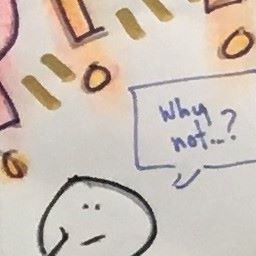 Why
not...?